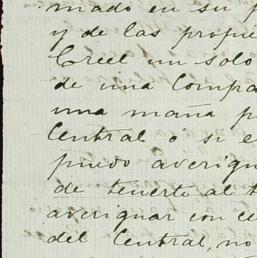 mado en su p
y de las propie
Creel un solo
de una Compa
una maña p
Central o si e
puedo averigu
de tenerte al t
averiguar con ce
del Central, no